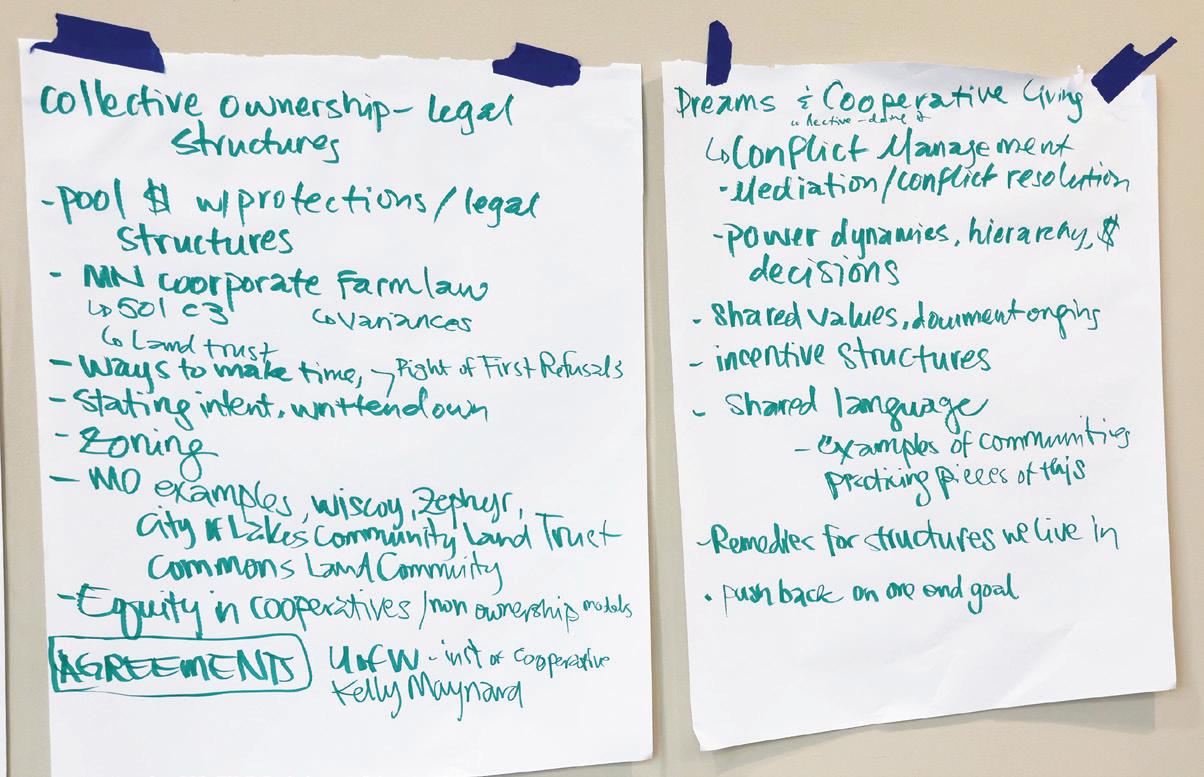 Collective ownership - legal
structures
- pool $ w/protections/legal
structures
- MN coorporate Farm law
↳ 501 c3 ↳ Variances
↳ Land trust
- Ways to make time, → Right of First Refusals
- Stating intent, written down
- Zoning
- MO examples, wiscoy, Zephyr,
City of Lakes Community Land Trust
Commons Land Commuity
- Equity in cooperatives/non ownership models
AGREEMENTS U of W - inst of cooperative
Kelly Maynard
Dreams & Cooperative Living
↳ Conflict Management
- Mediation/conflict resolution
- power dynamics, hierarchy, $
decisions
- Shared values, document onging
- incentive structures
- Shared language
- examples of communities
practicing pieces of this
- Remedies for structures we live in
• push back on one end goal